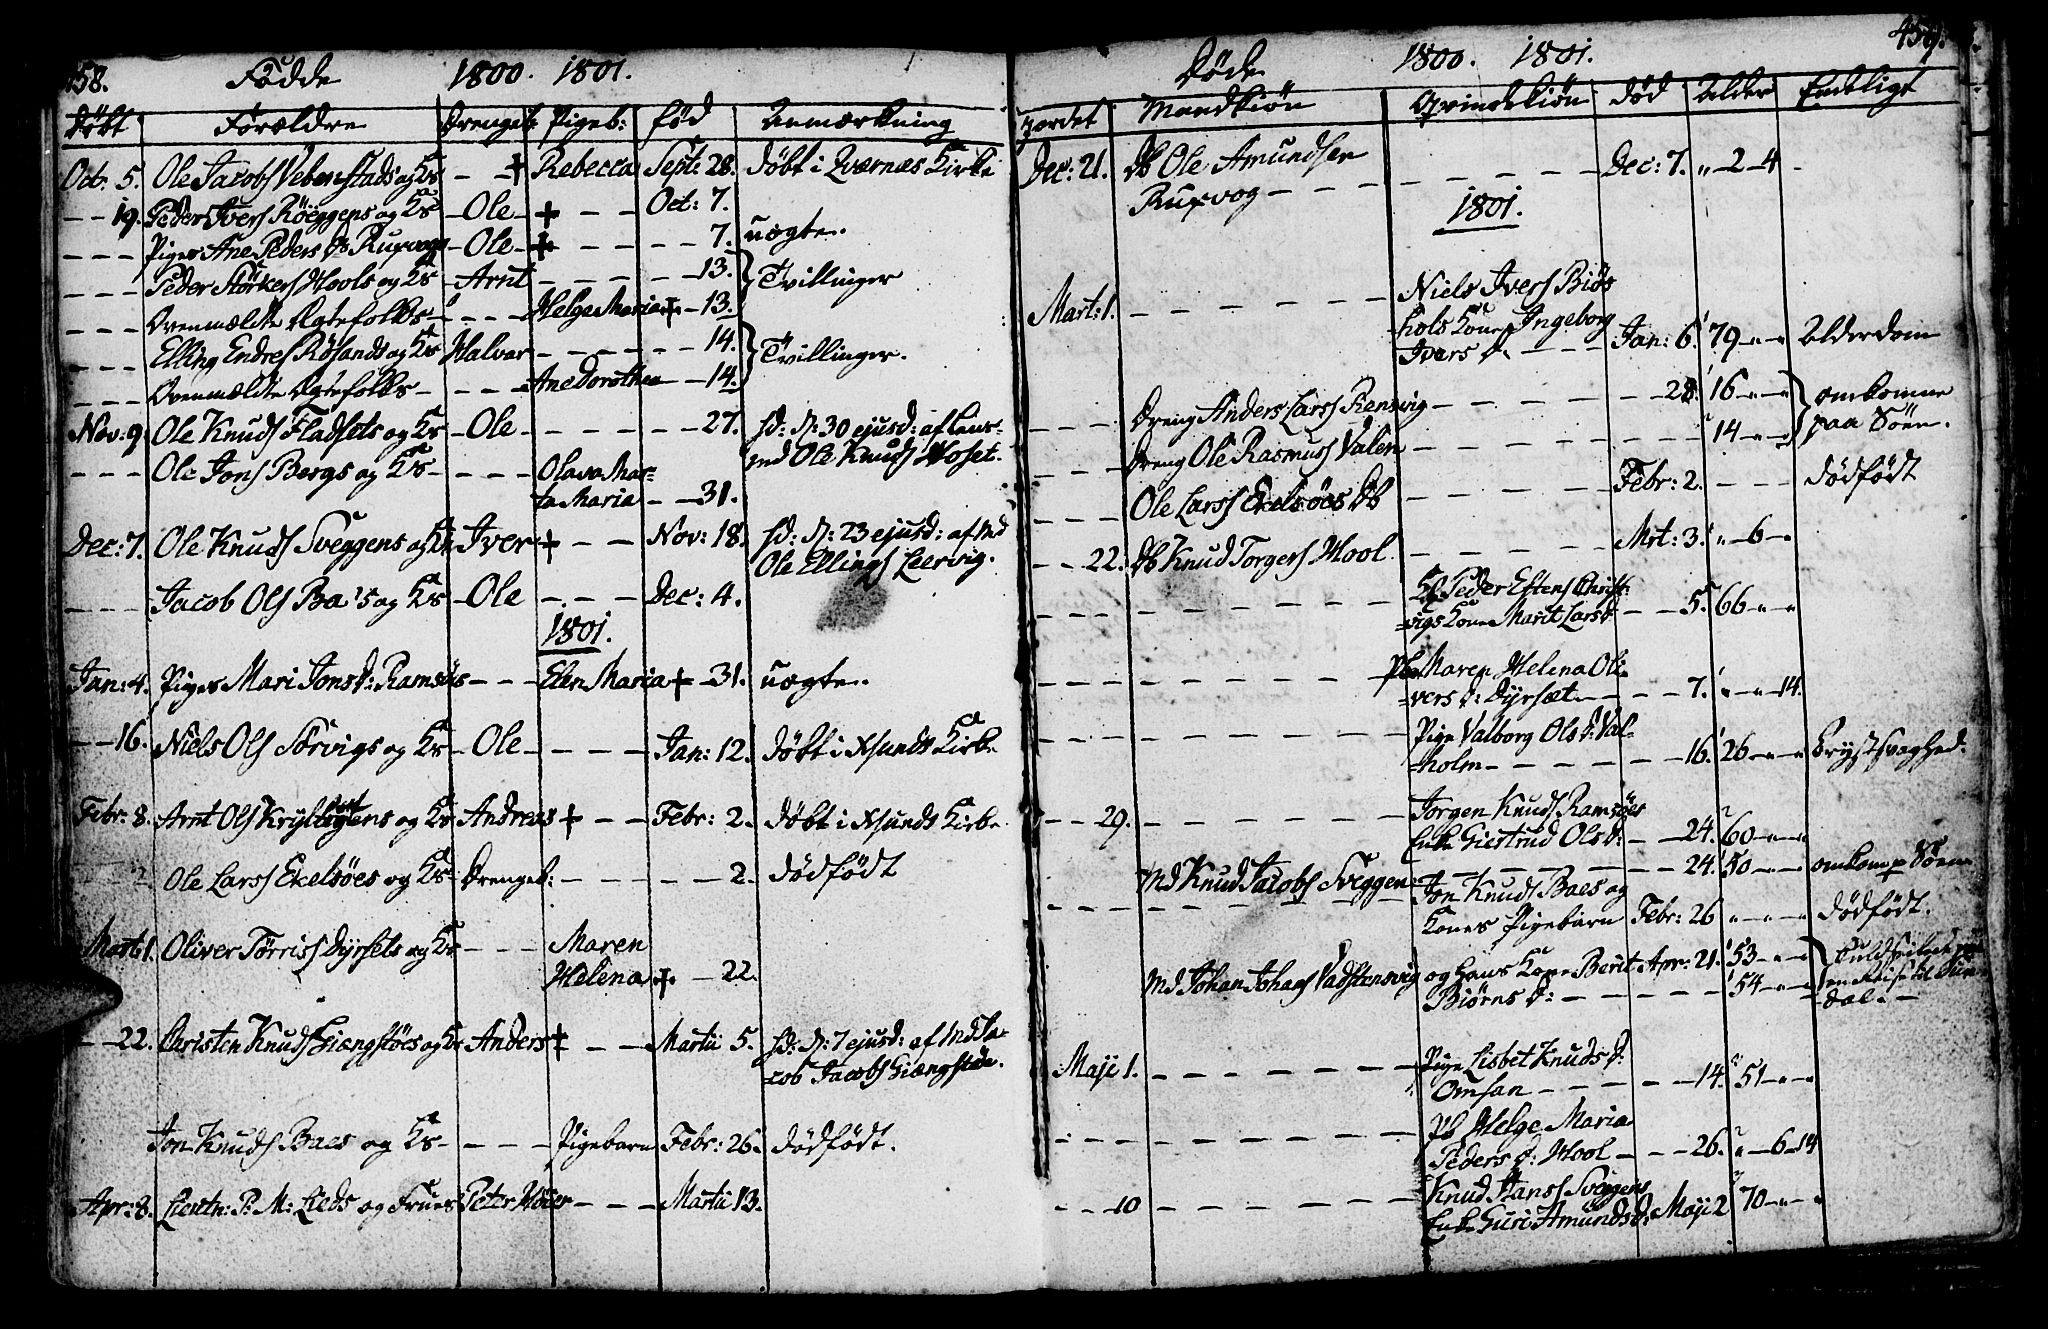 158. Födde 1800. 1801.
Döbt Forældre Drengeb: Pigeb: föd Anmærkning
Oct. 5. Ole Jacobs Vebenstads og Ks - - + Rebecca Sept: 28. döbt i Qværnæs Kirke
- - 19. Peder Ivers Röeggens og Ks - Ole - + - - Oct: 7.
- - - Pigen Ane Peders D: Ruxvog - Ole - + - - - - 7. uægte.
- - - Peder Störkers Hools og Ks - Arnt - - - - - 13. Tvillinger
- - - Ovenmældte Ægtefolks - - - - Helge Maria + - 13.
- - - Elling Endres Rösands og Ks Halvor - - - - - 14. Tvillinger.
- - - Ovenmældte Ægtefolks - - - - Ane Dorothea - 14.
Nov: 9. Ole Knuds Fladsets og Ks - Ole - - - - - - 27. hd: D: 30 ejusd: af Lens-
md Ole Knuds Hoset.
- - - Ole Jons Bergs og Ks - - - - Olava Mar-
ta Maria - - 31.
Dec: 7. Ole Knuds Sveggens og Ks Iver + - - Nov: 18. hd: D: 23 ejusd: af Md
Ole Ellings Leervig.
- - - Jacob Ols Ba's og Ks - Ole - - - Dec: 4.
1801.
Jan: 4. Pigen Mari Jons D: Ramsöes - - - Elen Maria + - 31. uægte.
- - 16. Niels Ols Sörvigs og Ks - Ole - - - - Jan: 12. Döbt i Xsunds Kirke
Febr: 8. Arnt Ols og Ks Andreas + - - Febr: 2. Döbt i Xsunds Kirke
Ole Lars Ekelsöes og Ks - Drengeb: - - - - - 2. dödfödt
Mart: 1. Oliver Törris Dyrsets og Ks - - - Maren
Helena + - 22.
- - 22. Christen Knuds Giængstöes og Ks Anders + - - Martii 5. hd: D: 7 ejusd: af Md Ja-
cob Jacobs Giængstöe.
Jon Knuds Baes og Ks - - - - Pigebarn Febr: 26. dödfödt.
Apr: 8. Lieutn: P: M: Lieds og Frues Peter Höier - - - Martii 13.
Döde 1800. 1801. 459.
Jordet Mandkiön Qvindekiön död Alder Endeligt
Dec: 21. Db Ole Amundsen - - - - - Dec: 7. " - 2 - 4 -
Ruxvog - - - -
1801.
Mart: 1. - - - - - - - Niels Ivers Biös-
hols Kone Ingeborg
Ivers D: - - - Jan: 6. 79 - " - " Alderdom
- - - Dreng Anders Lars Rensvig - - - - - - - 28. 16 - " - " omkomne
- - - Dreng Ole Rasmus Valen - - - - - - - 14 - " - " paa Söen.
- - - Ole Lars Ekelsöes Db - - - - - Febr: 2. - - - dödfödt
- - 22. Db Knud Torgers Hool - - - - - Mrt: 3. " - 6 - "
- - - - - - - - Peder Estens Christ-
vigs Kone Marit Lars D: - - 5. 66 - " - "
- - - - - - - - Pb Maren Helena Oli-
vers D: Dyrsæt - - - - 7. " - " - 14.
- - - - - - - - Pige Valborg Ols D: Val-
holm - - - - - - 16. 26 - " - " Brystsvaghed.
- - 29. - - - - - - Jorgen Knuds Ramsöes
Enke Giertrud Ols D: - - 24. 60 - " - "
Md Knud Jacobs Sveggen - - - - - - - 24. 50 - " - " omkom p Söen
- - - - - - - - Jon Knuds Baes og
Kones Pigebarn Febr: 26 " - " - " dödfödt.
Md Johan Johans Vadstensvig og hans Kone Berit Apr: 21. 53 - " - "
Biörns D: - - - - - 54 - " - " en Reise til Sun-
dal. -
Maji 1. - - - - - - - Pige Lisbet Knuds D:
Omsan - - - - - 14. 51 - " - "
- - - - - - - - Pb Helge Maria
Peders D: Hool - - - 26. " - 6 - 14
- - 10 - - - - - - Knud Hans Sveggens
Enke Guri Amunds D: Maji 2 70 - " - "